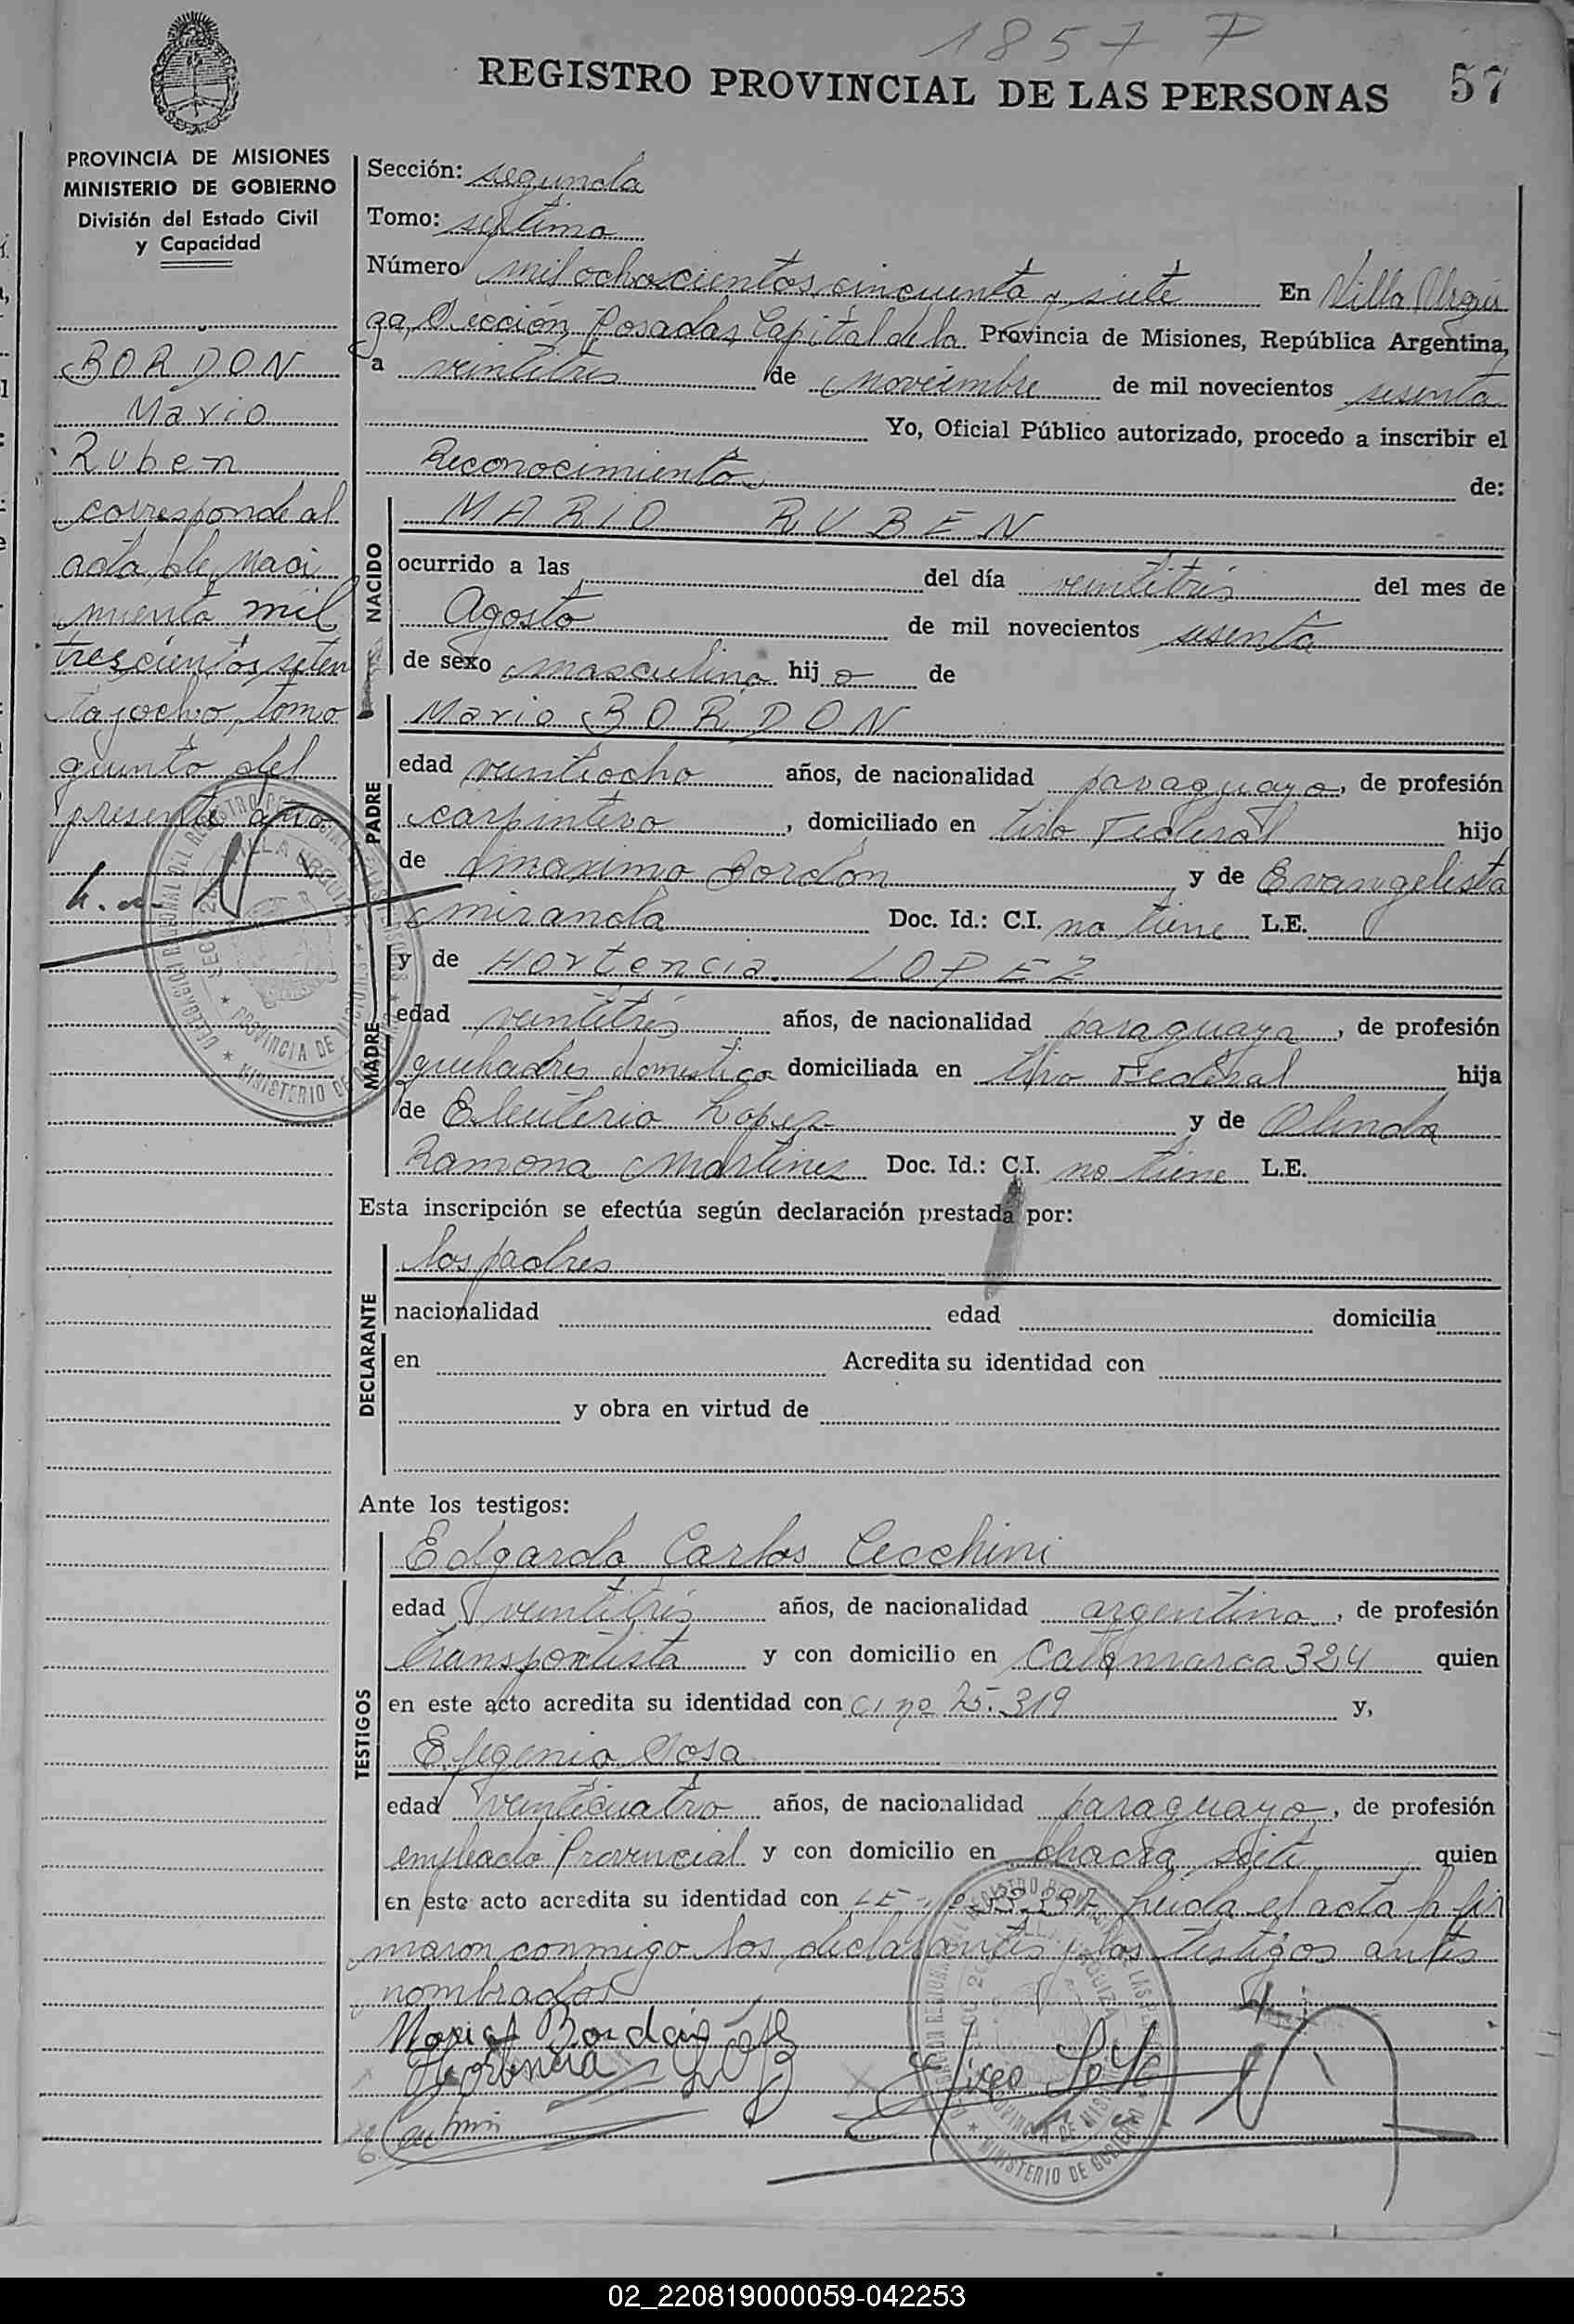 1857 7
REGISTRO PROVINCIAL DE LAS PERSONAS 57
PROVINCIA DE MISIONES
MINISTERIO DE GOBIERNO
División del Estado Civil
y Capacidad
BORDON
Mario
Ruben
corresponde al
acta de naci
miento mil
trescientos seten
ta y ocho, tomo
quinto del
presente año
Sección: segunda
Tomo: septimo
Número mil ochocientos cincuenta y siete En Villa Urqui
za, Sección Posadas Capital de la Provincia de Misiones, República Argentina,
a veintitres de noviembre de mil novecientos sesenta
Yo, Oficial Público autorizado, procedo a inscribir el
Reconocimiento de:
NACIDO
MARIO RUBEN
ocurrido a las del día veintitrés del mes de
Agosto de mil novecientos sesenta
de sexo masculino hijo de
PADRE
Mario BORDON
edad veintiocho años, de nacionalidad paraguayo, de profesión
carpintero, domiciliado en tiro Federal hijo
de maximo Bordón y de Evangelista
miranda Doc. Id.: C.I. no tiene L.E.
MADRE
y de Hortencia LOPEZ
edad veintitrés años, de nacionalidad paraguaya, de profesión
quehadres domestica domiciliada en tiro Federal hija
de Eleuterio Lopez y de Olinda
Ramona Martinez Doc. Id.: C.I. no tiene L.E.
Esta inscripción se efectúa según declaración prestada por:
DECLARANTE
los padres
nacionalidad edad domicilia
en Acredita su identidad con
y obra en virtud de
Ante los testigos:
TESTIGOS
Edgardo Carlos Cecchini
edad veintitrés años, de nacionalidad argentino, de profesión
transportista y con domicilio en Catamarca 324 quien
en este acto acredita su identidad con CI no 25.319 y,
Efegenio Sosa
edad veinticuatro años, de nacionalidad paraguayo, de profesión
empleado Provincial y con domicilio en chacra siete quien
en este acto acredita su identidad con LE leida el acta la fir
maron conmigo los declarantes y los testigos antes
nombrados
Mario Bordón
Hortencia
02_220819000059-042253